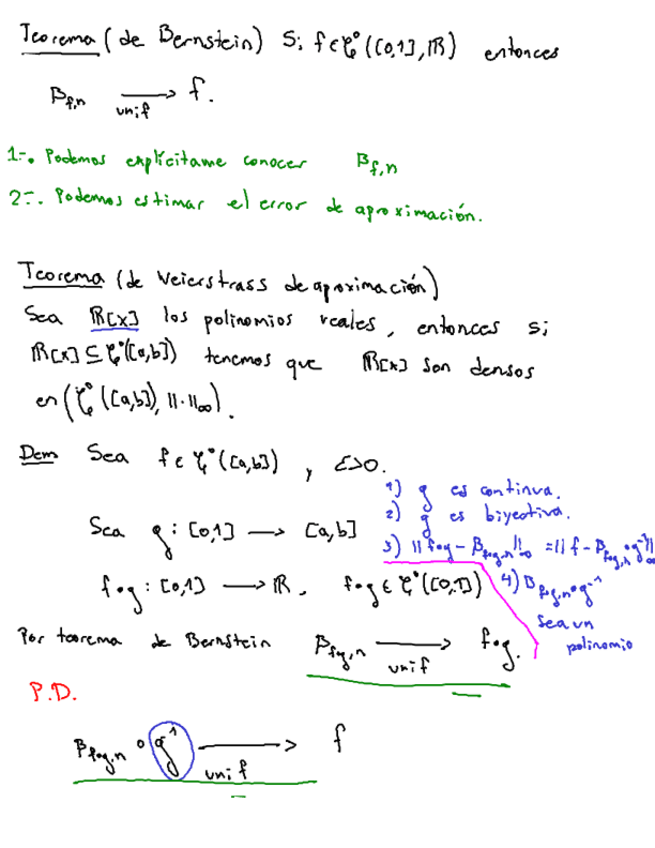 Teorema (de Bernstein) Si f ∈ C°([0,1], ℝ) entonces
B_{f,n} ⟶ f.
unif
1-. Podemos explícitame conocer B_{f,n}
2-. Podemos estimar el error de aproximación.
Teorema (de Weierstrass de aproximación)
Sea ℝ[x] los polinomios reales, entonces si
ℝ[x] ⊆ C°([a,b]) tenemos que ℝ[x] son densos
en (C°([a,b]), ||·||_∞).
Dem Sea f ∈ C°([a,b]), ε>0.
1) g es continua.
2) g es biyectiva.
Sea g : [0,1] ⟶ [a,b]
3) ||f∘g - B_{f∘g,n}||_∞ = ||f - B_{f∘g,n}∘g⁻¹||_∞
f∘g : [0,1] ⟶ ℝ. f∘g ∈ C°([0,1])
4) B_{f∘g,n}∘g⁻¹
sea un
polinomio
Por teorema de Bernstein B_{f∘g,n} ⟶ f∘g.
unif
P.D.
B_{f∘g,n} ∘ g⁻¹ ⟶ f
unif